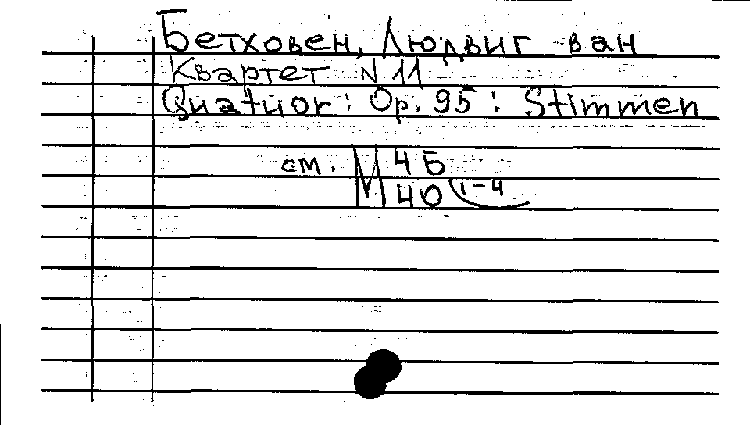 Бетховен, Людвиг ван
Квартет N 11
Quatuor: Op. 95: Stimmen
см. М 45
40 1-4